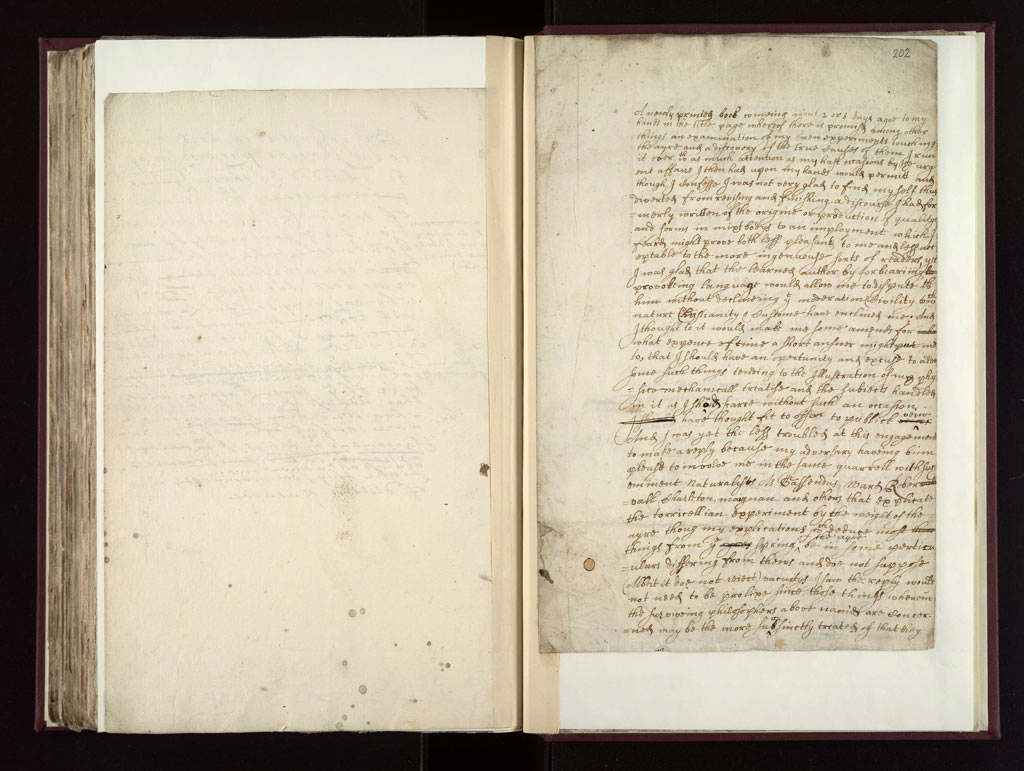 202
A newly printed book comeing about 2 or 3 days agoe to my
hands in the title page wherof there is promisd among other
things an examination of my new experiments touching
the ayre and a discovery of the true causes of them I run
it over wth as much attention as my hast ocasions by the urg
ent affairs I then had upon my hands would permitt and
though I confesse I was not very glad to find my self thus
diverted from revising and finishing a discourse I had for
=merly written of the origine or production of qualitys
and forms in mixt bodys to an imployment which I
feard might prove both less pleasant to me and less acc
eptable to the more ingeneuse sorts of readers, yet
I was glad that the learned author by forbearing
provokeing language would allow me to dispute wth
him without declineing ye moderation & Civility wch
nature Christianity & Custome have enclined me. And
I thought to it would make me some amends for
what expence of time a short answer might put me
to, that I should have an opertunity and excuse to adde
some such things tending to the Illustration of my phy
=sico mechanicall treatise and the subjects handled
in it as I should scarce without such an occasion
have thought fit to offer to publick veiw
And I was yet the less troubled at this engagement
to make a reply because my adversary haveing binn
pleasd to involve me in the same quarrell with such
eminent Naturalists As Gassendus, Ward, Rober
=vall Charleton, magnan and others that explicate
the torricellian experiment by the weight of the
ayre thoug my explications wch deduce most
things from ye spring of the ayre be in some perticu
=ulars differing from theirs and doe not suppose
(Albeit it doe not reject) vacuitys I saw the reply would
not need to be prolixe since those things wherein
the surviveing philosophers above named are concer
=ned may be the more succinctly treated of that they